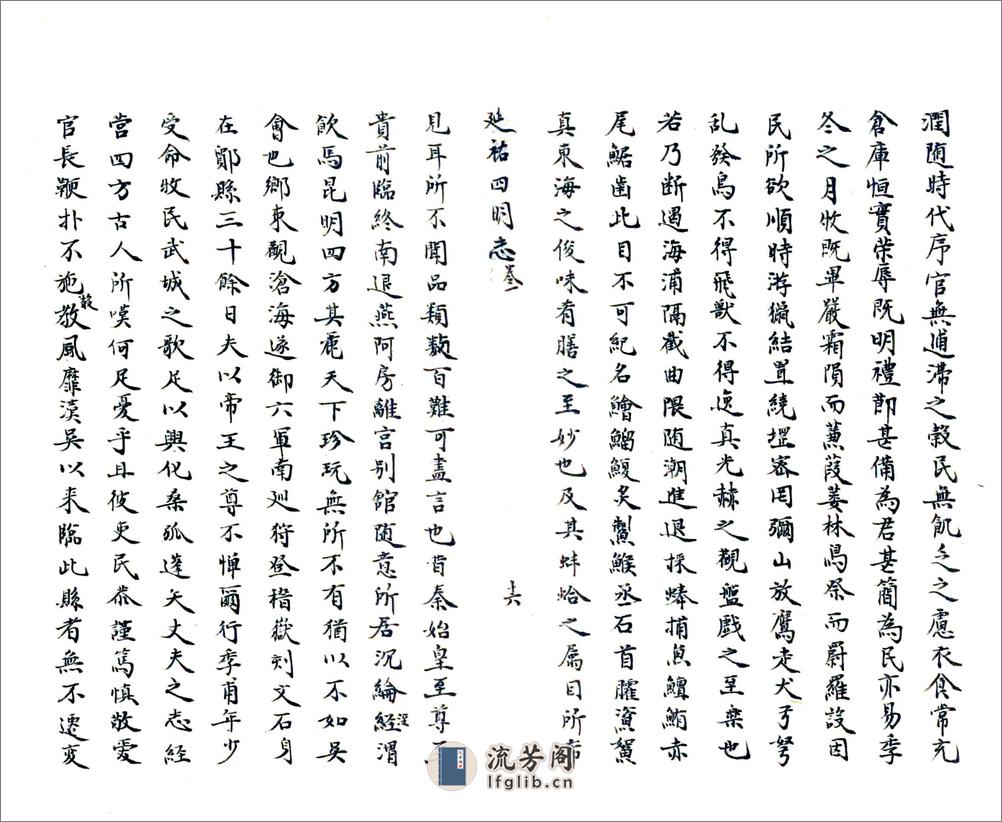 潤随時代序官無逋滯之穀民無飢乏之慮衣食常充
倉庫恒實荣辱既明禮節甚備為君甚簡為民亦易季
冬之月牧既畢嚴霜隕而蒹葭萎林鳥祭而罻羅設因
民所欲順時游獵結罝繞堽密罔彌山放鷹走犬弓弩
乱發鳥不得飛獸不得逸真光赫之觀盤戲之至楽也
若乃断遏海浦隔截曲隈随潮進退採蜯捕魚鱣鮪赤
尾鯌齒比目不可紀名鱠鰡鰒炙䱥鯸烝石首臛𩶁鴽
真東海之俊味肴膳之至妙也及其蚌蛤之属目所希
十六
延祐四明志 卷一
見耳所不聞品類數百難可盡言也昔秦始皇至尊至
貴前臨終南退燕阿房離宫别館随意所居沉綸涇渭
飲馬昆明四方其麗天下珍玩無所不有猶以不如吴
會也鄉東觀滄海遂御六軍南廵狩登稽嶽刻文石身
在鄮縣三十餘日夫以帝王之尊不惮爾行季甫年少
受命牧民武城之歌足以興化桑弧蓬矢丈夫之志経
営四方古人所嘆何足憂乎且彼吏民恭謹篤慎敬愛
官長鞭扑不施教風靡漢吴以来臨此縣者無不遷变
流芳阁
lfglib.cn